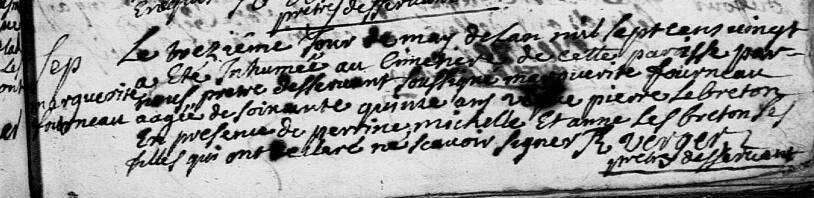 prêtre desservant
Sep
marguerite
fourneau
Le trezième Jour de may de Lan mil Sept cens vingt
a Eté Inhumée au Cimetière de cette paroisse par
nous prêtre desservant Soussigné marguerite fourneau
aagée de soixante quinze ans veuve pierre Lebreton
En presence de perrine michelle Et anne Les bretons ses
filles qui ont declaré ne scavoir signer R Verger
prêtre desservant